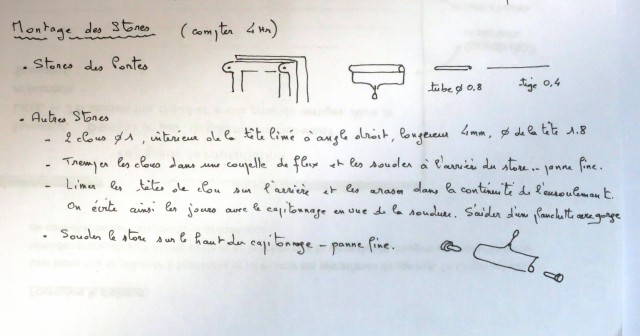 Montage des Stores (compter 4 Hr)
. Stores des Portes
tube ø 0,8
tige 0,4
. Autres Stores
- 2 clous ø 1, intérieur de la tête limé à angle droit, longueur 4mm, ø de la tête 1.8
- Tremper les clous dans une coupelle de flux et les souder à l'arrière du store.. panne fine.
- Limer les têtes de clou sur l'arrière et les araser dans la continuité de l'enroulement.
On évite ainsi les jours avec le capitonnage en vue de la soudure. S'aider d'une planchette avec gorge
. Souder le store sur le haut du capitonnage - panne fine.